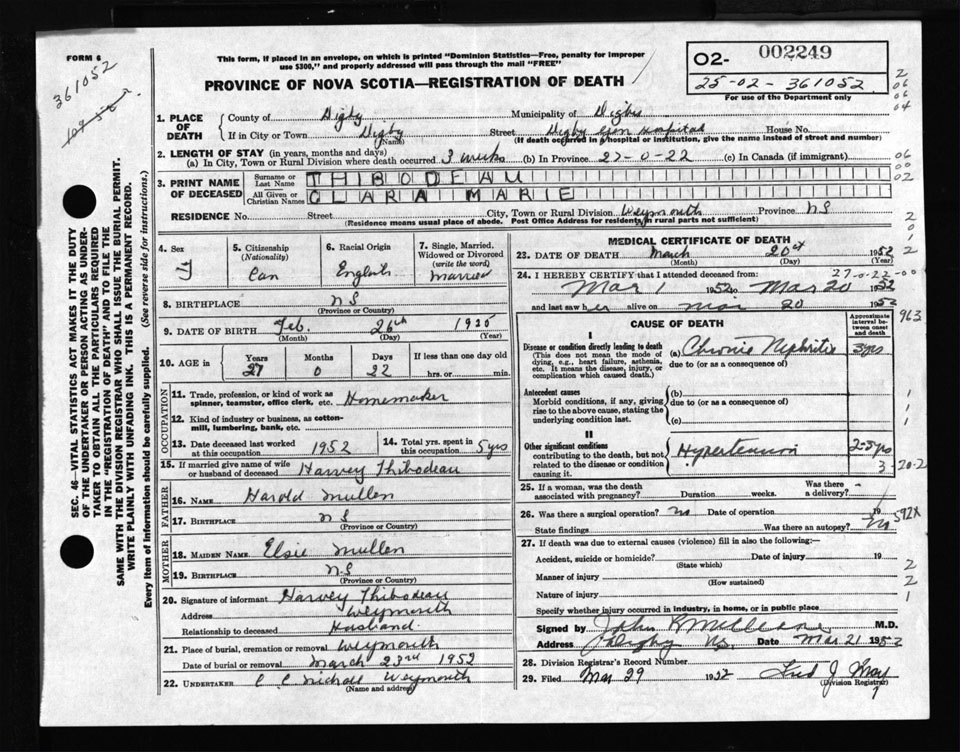 FORM 6
361052
This form, if placed in an envelope, on which is printed "Dominion Statistics—Free, penalty for improper
use $300," and properly addressed will pass through the mail "FREE"
PROVINCE OF NOVA SCOTIA—REGISTRATION OF DEATH
O2- 002249
25-02-361052
For use of the Department only
SEC. 46—VITAL STATISTICS ACT MAKES IT THE DUTY
OF THE UNDERTAKER OR PERSON ACTING AS UNDER-
TAKER TO OBTAIN ALL THE PARTICULARS REQUIRED
IN THE "REGISTRATION OF DEATH" AND TO FILE THE
SAME WITH THE DIVISION REGISTRAR WHO SHALL ISSUE THE BURIAL PERMIT.
WRITE PLAINLY WITH UNFADING INK. THIS IS A PERMANENT RECORD.
Every item of Information should be carefully supplied. (See reverse side for instructions.)
1. PLACE OF DEATH
County of Digby Municipality of Digby
If in City or Town Digby Street Digby Gen Hospital House No.
(Name) (If death occurred in a hospital or institution, give the name instead of street and number)
2. LENGTH OF STAY (in years, months and days)
(a) In City, Town or Rural Division where death occurred 3 weeks (b) In Province 27-0-22 (c) In Canada (if immigrant)
3. PRINT NAME OF DECEASED
Surname or Last Name THIBODEAU
All Given or Christian Names CLARA MARIE
RESIDENCE No. Street City, Town or Rural Division Weymouth Province NS
(Residence means usual place of abode. Post Office Address for residents in rural parts not sufficient)
4. Sex F
5. Citizenship (Nationality) Can
6. Racial Origin English
7. Single, Married, Widowed or Divorced (write the word) Married
8. BIRTHPLACE NS
(Province or Country)
9. DATE OF BIRTH Feb. 26th 1925
(Month) (Day) (Year)
10. AGE in Years Months Days If less than one day old
27 0 22 hrs. or min.
OCCUPATION
11. Trade, profession, or kind of work as
spinner, teamster, office clerk, etc. Homemaker
12. Kind of industry or business, as cotton-
mill, lumbering, bank, etc.
13. Date deceased last worked
at this occupation 1952
14. Total yrs. spent in
this occupation 5 yrs
15. If married give name of wife
or husband of deceased Harvey Thibodeau
FATHER
16. NAME Harold Mullen
17. BIRTHPLACE NS
(Province or Country)
MOTHER
18. MAIDEN NAME Elsie Mullen
19. BIRTHPLACE N.S
(Province or Country)
20. Signature of informant Harvey Thibodeau
Address Weymouth
Relationship to deceased Husband
21. Place of burial, cremation or removal Weymouth
Date of burial or removal March 23rd 1952
22. UNDERTAKER C. C. Nichols Weymouth
(Name and address)
MEDICAL CERTIFICATE OF DEATH
23. DATE OF DEATH March 20th 1952
(Month) (Day) (Year)
27-0-22-00
24. I HEREBY CERTIFY that I attended deceased from:
Mar 1 1952 to Mar 20 1952
and last saw her alive on Mar 20 1952
CAUSE OF DEATH
Approximate interval between onset and death
963
I
Disease or condition directly leading to death
(This does not mean the mode of
dying, e.g., heart failure, asthenia,
etc. It means the disease, injury, or
complication which caused death.)
(a) Chronic Nephritis 3 yrs
due to (or as a consequence of)
Antecedent causes
Morbid conditions, if any, giving
rise to the above cause, stating the
underlying condition last.
(b)
due to (or as a consequence of)
(c)
II
Other significant conditions
contributing to the death, but not
related to the disease or condition
causing it.
Hypertension 2-3 yrs
3 20-2
25. If a woman, was the death
associated with pregnancy? Duration weeks. Was there a delivery?
26. Was there a surgical operation? No Date of operation 19
592X
State findings Was there an autopsy? No
27. If death was due to external causes (violence) fill in also the following:—
Accident, suicide or homicide? Date of injury 19
(State which)
Manner of injury
(How sustained)
Nature of injury
Specify whether injury occurred in industry, in home, or in public place
Signed by M.D.
Address Digby NS. Date Mar 21 1952
28. Division Registrar's Record Number
29. Filed Mar 29 1952
(Division Registrar)